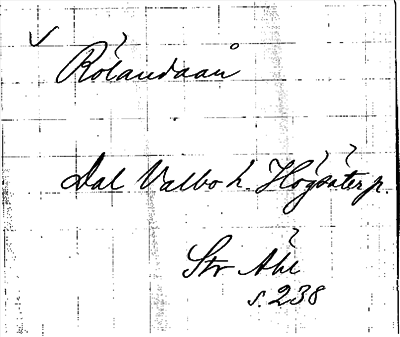 Rölandaån
Dal Valbo h. Högsäter p.
Str Åhl
s. 238